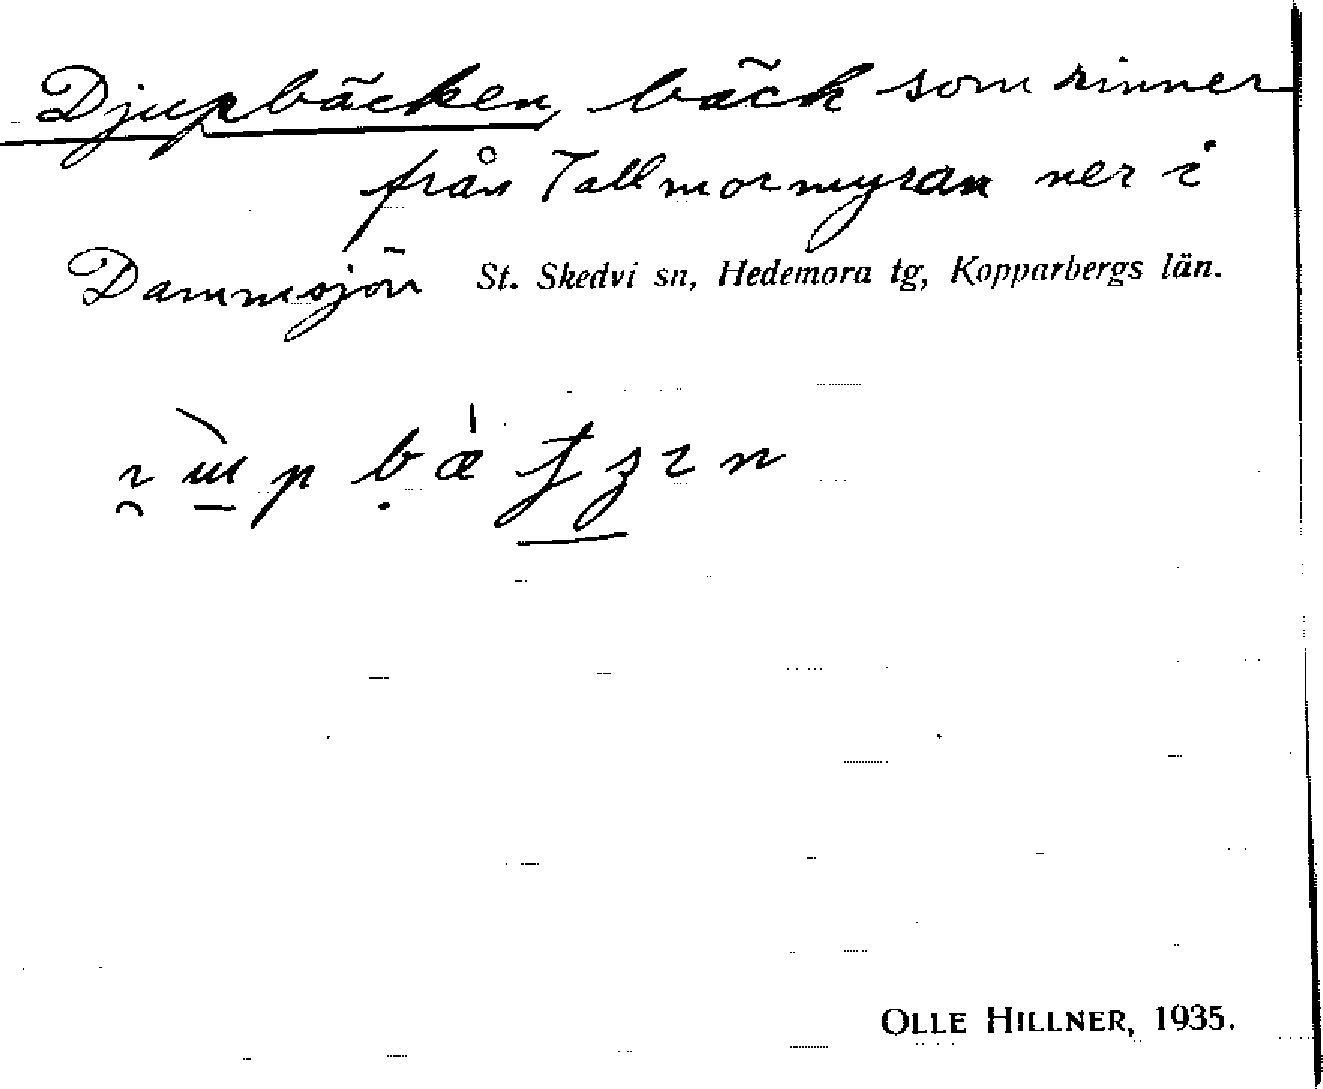 Djupbäcken, bäck som rinner
från Tallmormyran ner i
Dammsjön St. Skedvi sn, Hedemora tg, Kopparbergs län.
OLLE HILLNER, 1935.